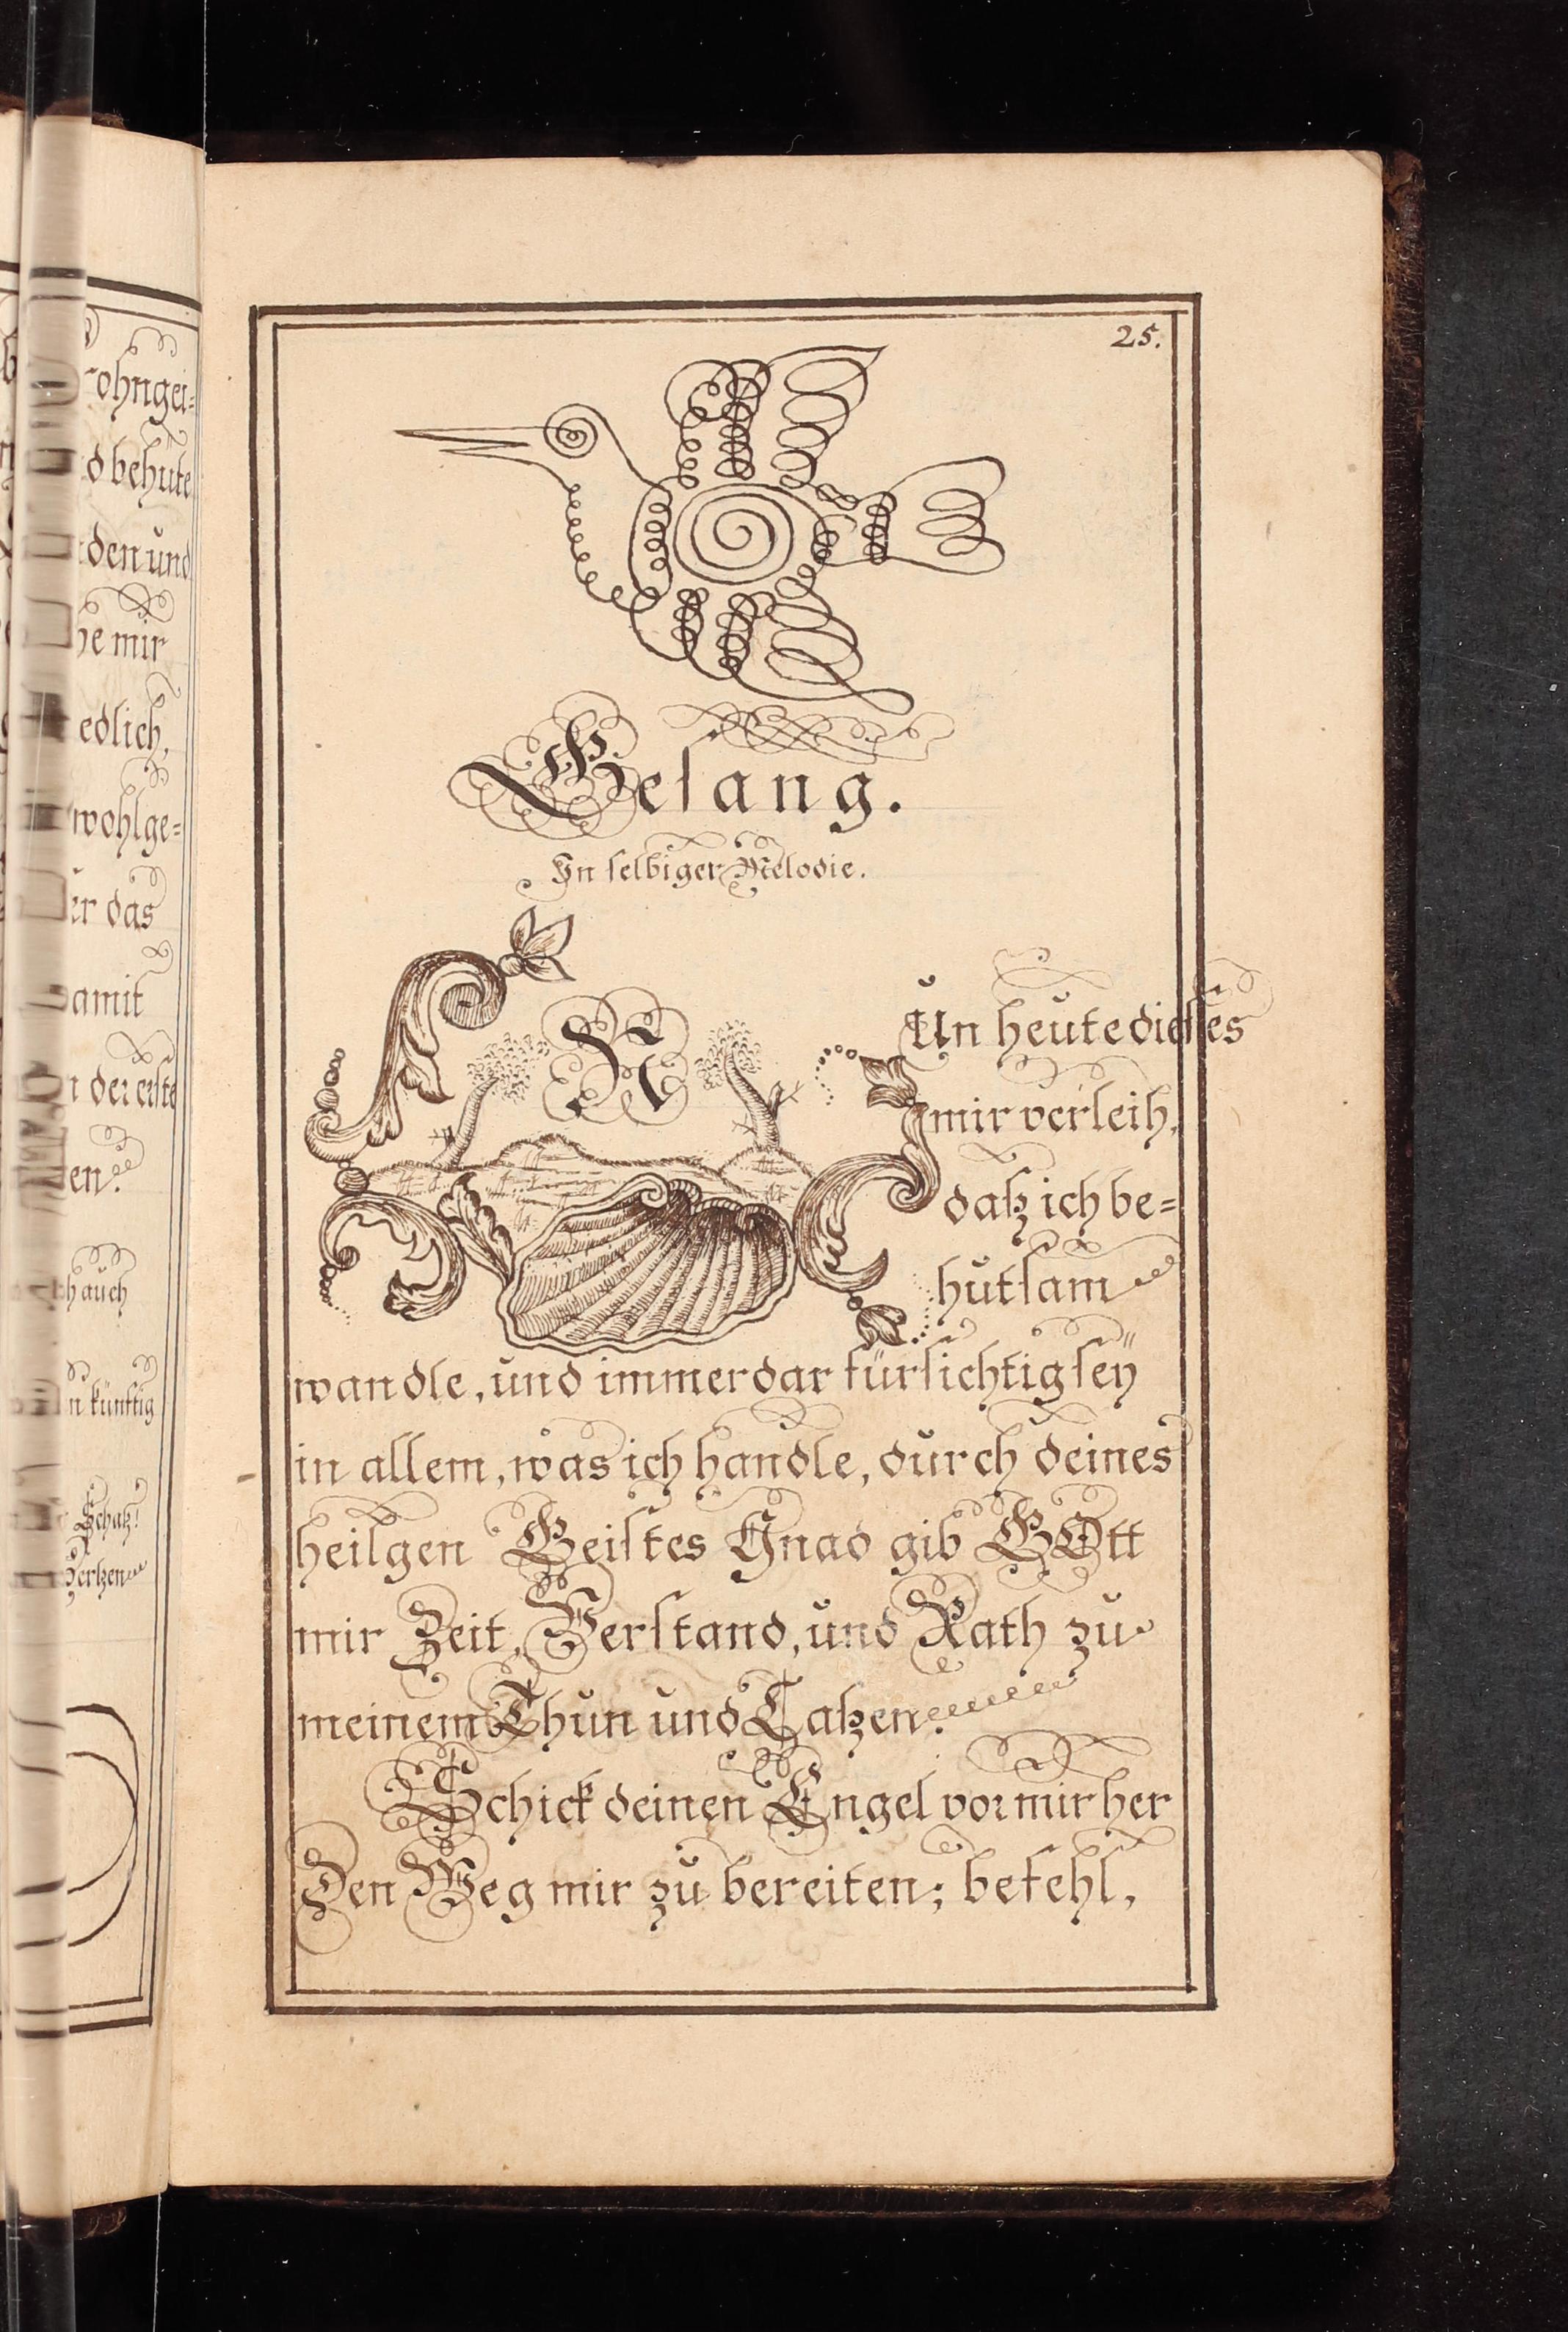 ohngei=
d behüte
den und
he mir
edlich,
wohlge=
er das
amit
der erste
en.
h auch
n künftig
Schatz!
Hertzen
25.
Gesang.
In selbiger Melodie.
NUn heute dieses
mir verleih,
daß ich be=
hutsam
wandle, und immerdar fürsichtig seÿ
in allem, was ich handle, durch deines
heilgen Geistes Gnad gib GOtt
mir Zeit, Verstand, und Rath zu
meinem Thun und Laßen.
Schick deinen Engel vor mir her
Den Weg mir zu bereiten; befehl,